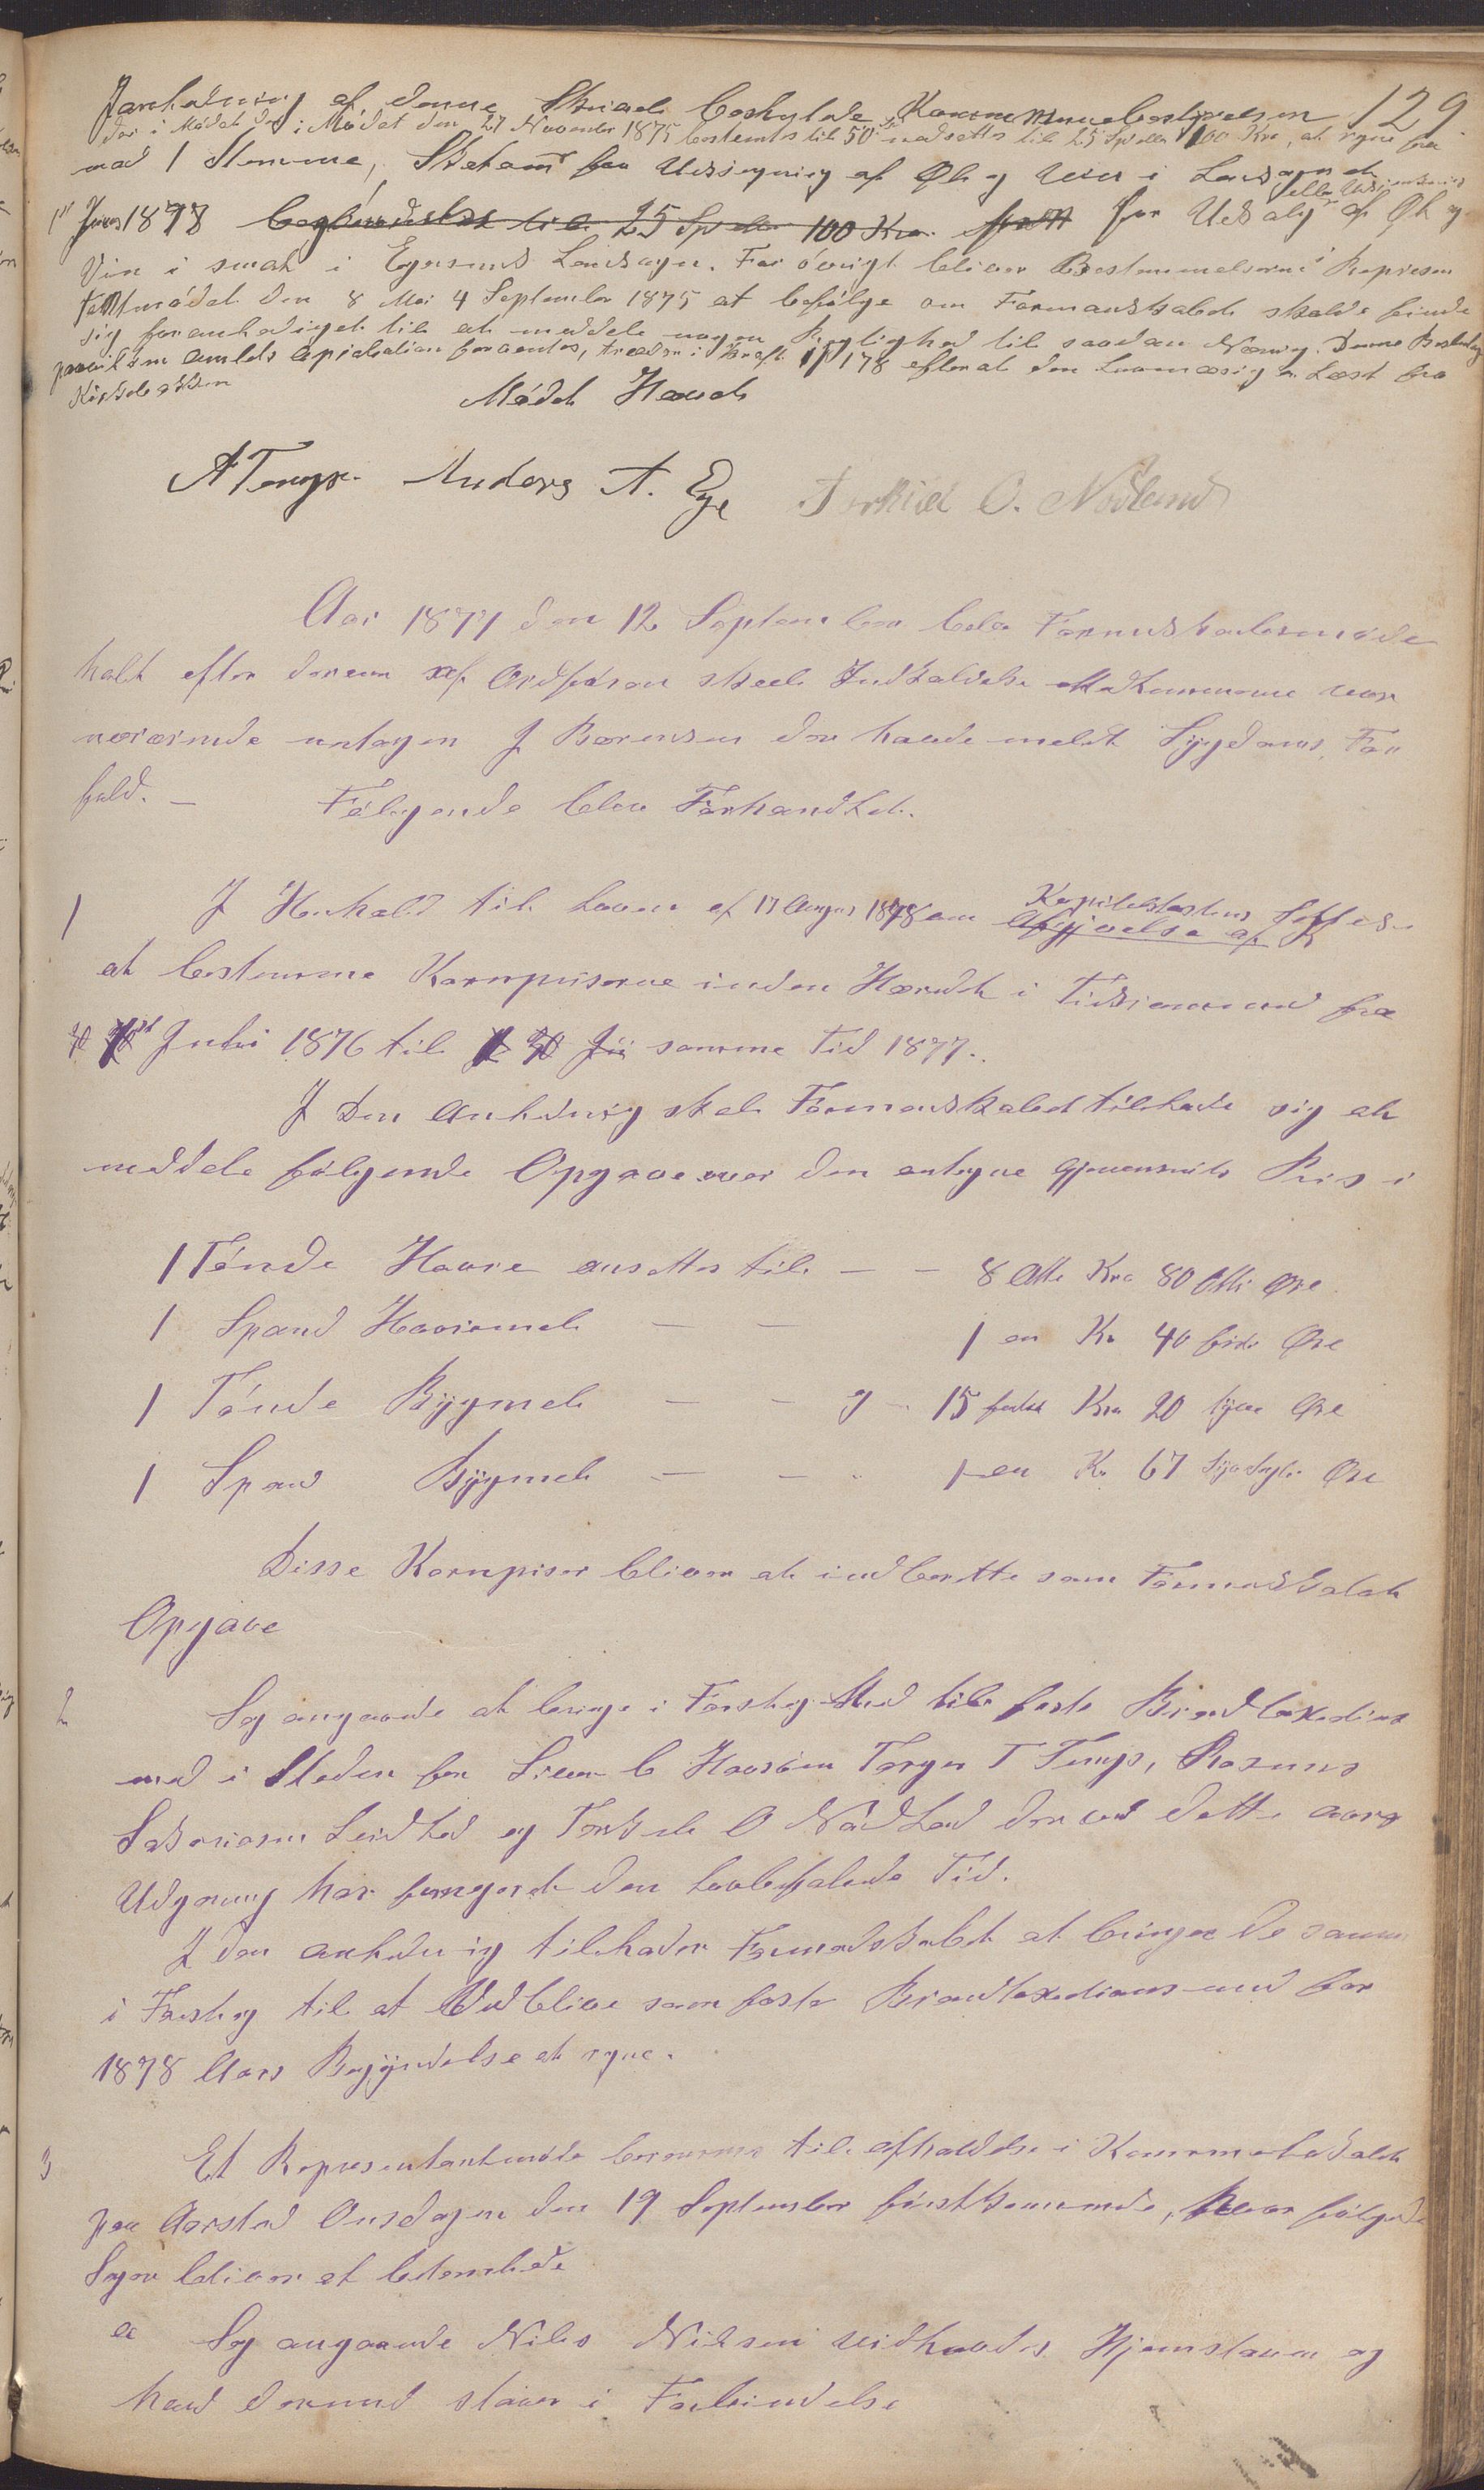 129
af denne
der i Mødet den 27 November 1875 bestemtes til 50 nedsættes til 25 Spd eller 100 Kr, at regne fra
mod 1 Stemme, for Udskjænkning af Øl og Vin i Landsognet
eller Udskjænkning
1ste Januar 1878 25 Spd eller 100 Kr for Udsalg af Øl og
Vin i smat i Egersund Landsogn. For øvrigt bliver Bestemmelserne i Represen
tantmødet den 4 September 1875 at befølge om Formandskabet skulde finde
sig foranlediget til at meddele nogen til saadan Næring. Denne
Amtets Aprobation forventes, træder i Kraft efterat den er Læst fra
Kirkebakken
Mødet Hævet
A Tengs. Anders A. Eye Torkild O. Nødland
Aar 1877 den 12 September blev Formandskabsmøde
holdt efter derom af Ordføreren skeet Indkaldelse Medlemmerne var
nærværende untagen J Berensen der havde meldt Sygdoms For
fald. — Følgende blev Forhandlet.
1 I Henhold til Loven af 17 August 1848 om Afgjørelse af
at bestemme Kornpriserne inden Herredet i Tidsrummet fra
Juli 1876 til samme Tid 1877.
I den Anledning skal Formandskabet tillade sig at
meddele følgende Opgave over den antagne gjenemsnits Pris i
1 Tønde Havre ansættes til — — 8 otte Kr 80 otti Øre
1 Spand Havremel — — 1 en Kr 40 firti Øre
1 Tønde Bygmel — — 15 femten Kr 20 tyve Øre
1 Spand Bygmel — — 1 en Kr 67 Øre
Disse Kornpriser bliver at indberette som Formandskabet
Opgave
2 Sag angaaende at bringe i Forslag Mænd til faste Brandtaxations
mænd i Steden for Siver Torger T Tengs, Rasmus
og Torkild O Nødland der ved dette aars
Udgang har fungeret den lovbefalede Tid.
I den anledning tillader Formandskabet at bringe de samme
i Forslag til at Vedblive som faste Brandtaxationsmænd for
1878 Aars Begyndelse at regne.
3 Et Representantmøde berammes til afholdelse i Kommunelokalet
paa Aarstad Onsdagen den 19 September førstkommende, hvor følgende
Sager bliver at behandle
a Sag angaaende Nils Nilsen Hjemstavn og
hvad dermed staaer i Forbindelse